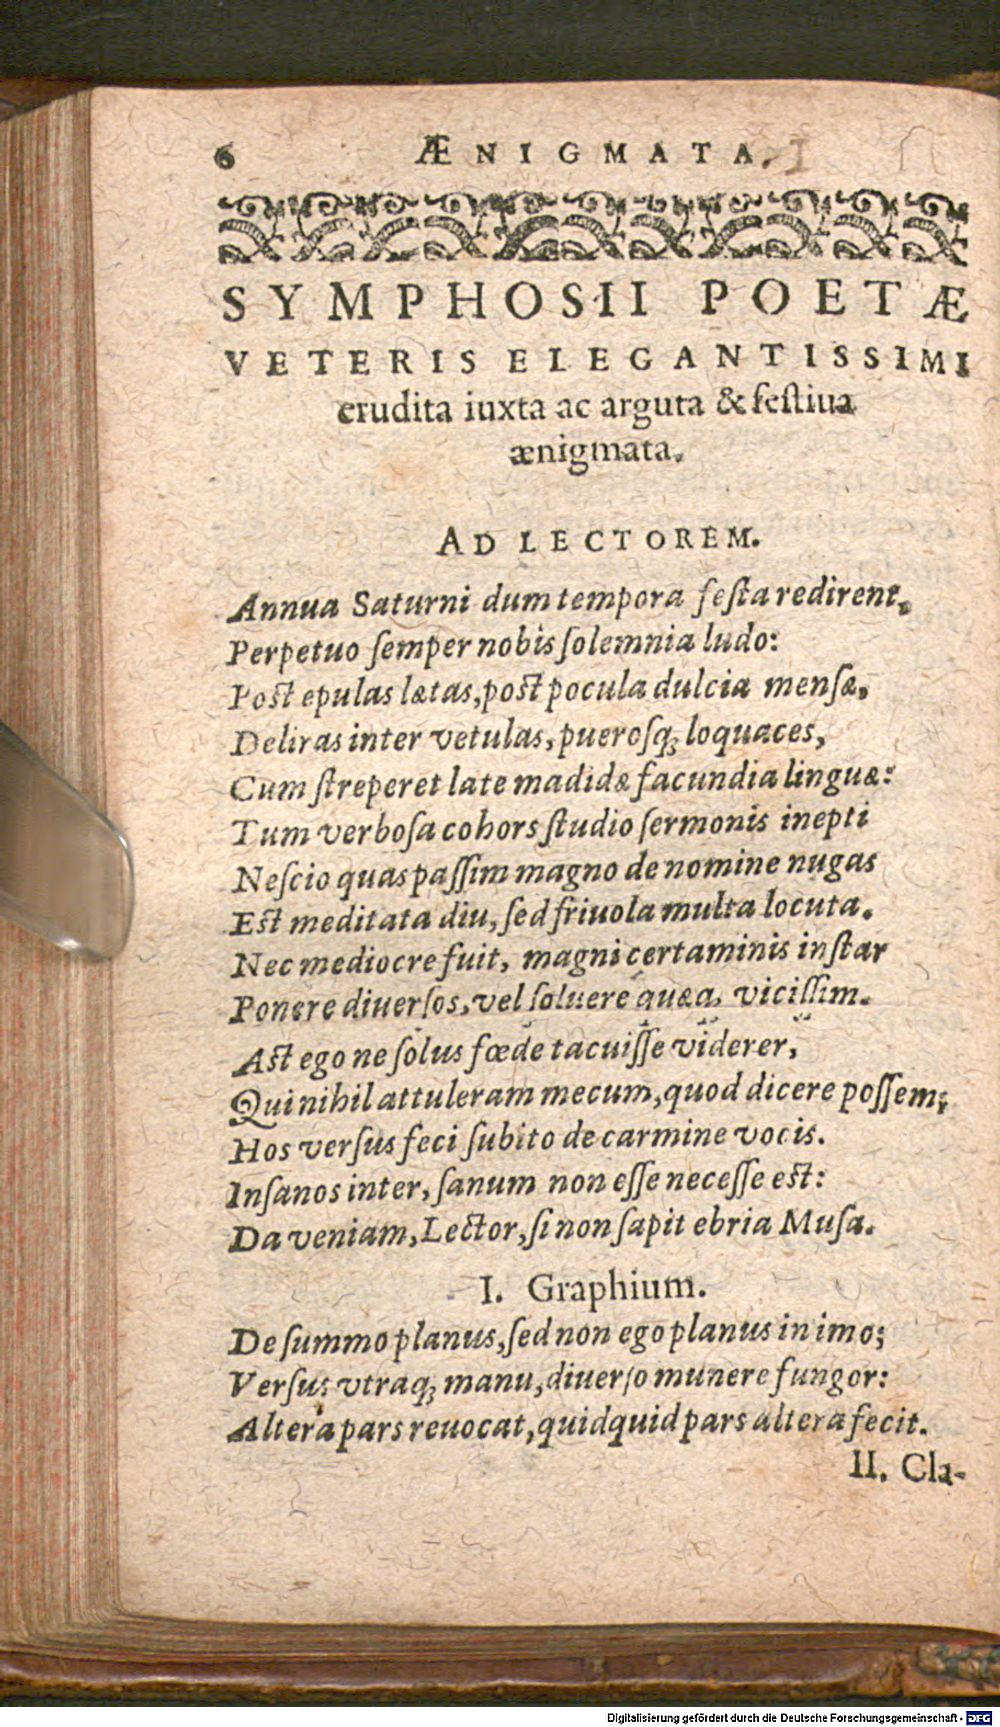 6 ÆNIGMATA.
SYMPHOSII POETÆ
VETERIS ELEGANTISSIMI
erudita iuxta ac arguta & feſtiua
ænigmata.
AD LECTOREM.
Annua Saturni dum tempora feſta redirent,
Perpetuo ſemper nobis ſolemnia ludo:
Poſt epulas lætas, poſt pocula dulcia menſæ,
Deliras inter vetulas, pueroſq; loquaces,
Cum ſtreperet late madidæ facundia linguæ:
Tum verboſa cohors ſtudio ſermonis inepti
Neſcio quas paſſim magno de nomine nugas
Eſt meditata diu, ſed friuola multa locuta.
Nec mediocre fuit, magni certaminis inſtar
Ponere diuerſos, vel ſoluere quæq; viciſſim.
Aſt ego ne ſolus fœde tacuiſſe viderer,
Qui nihil attuleram mecum, quod dicere poſſem;
Hos verſus feci ſubito de carmine vocis.
Inſanos inter, ſanum non eſſe neceſſe eſt:
Da veniam, Lector, ſi non ſapit ebria Muſa.
I. Graphium.
De ſummo planus, ſed non ego planus in imo;
Verſus vtraq; manu, diuerſo munere fungor:
Altera pars reuocat, quidquid pars altera fecit.
II. Cla-
Digitalisierung gefördert durch die Deutsche Forschungsgemeinschaft - DFG